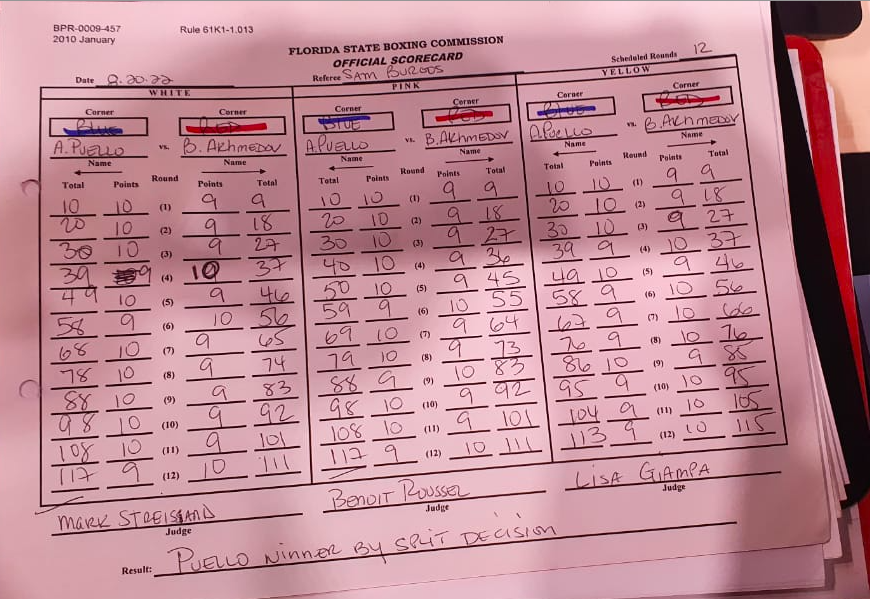 BPR-0009-457 Rule 61K1-1.013
2010 January
FLORIDA STATE BOXING COMMISSION
OFFICIAL SCORECARD
Date 8.20.22 Referee SAM BURGOS Scheduled Rounds 12
WHITE PINK YELLOW
Corner Corner Corner Corner Corner Corner
BLUE RED BLUE RED BLUE RED
A.PUELLO vs. B. AKHMEDOV A.PUELLO vs. B.AKHMEDOV A.PUELLO vs. B.AKHMEDOV
Name Name Name Name Name Name
Total Points Round Points Total Total Points Round Points Total Total Points Round Points Total
10 10 (1) 9 9 10 10 (1) 9 9 10 10 (1) 9 9
20 10 (2) 9 18 20 10 (2) 9 18 20 10 (2) 9 18
30 10 (3) 9 27 30 10 (3) 9 27 30 10 (3) 9 27
39 9 (4) 10 37 40 10 (4) 9 36 39 9 (4) 10 37
49 10 (5) 9 46 50 10 (5) 9 45 49 10 (5) 9 46
58 9 (6) 10 56 59 9 (6) 10 55 58 9 (6) 10 56
68 10 (7) 9 65 69 10 (7) 9 64 67 9 (7) 10 66
78 10 (8) 9 74 79 10 (8) 9 73 76 9 (8) 10 76
88 10 (9) 9 83 88 9 (9) 10 83 86 10 (9) 9 85
98 10 (10) 9 92 98 10 (10) 9 92 95 9 (10) 10 95
108 10 (11) 9 101 108 10 (11) 9 101 104 9 (11) 10 105
117 9 (12) 10 111 117 9 (12) 10 111 113 9 (12) 10 115
MARK STREISAND BENOIT ROUSSEL LISA GIAMPA
Judge Judge Judge
Result: PUELLO WINNER BY SPLIT DECISION